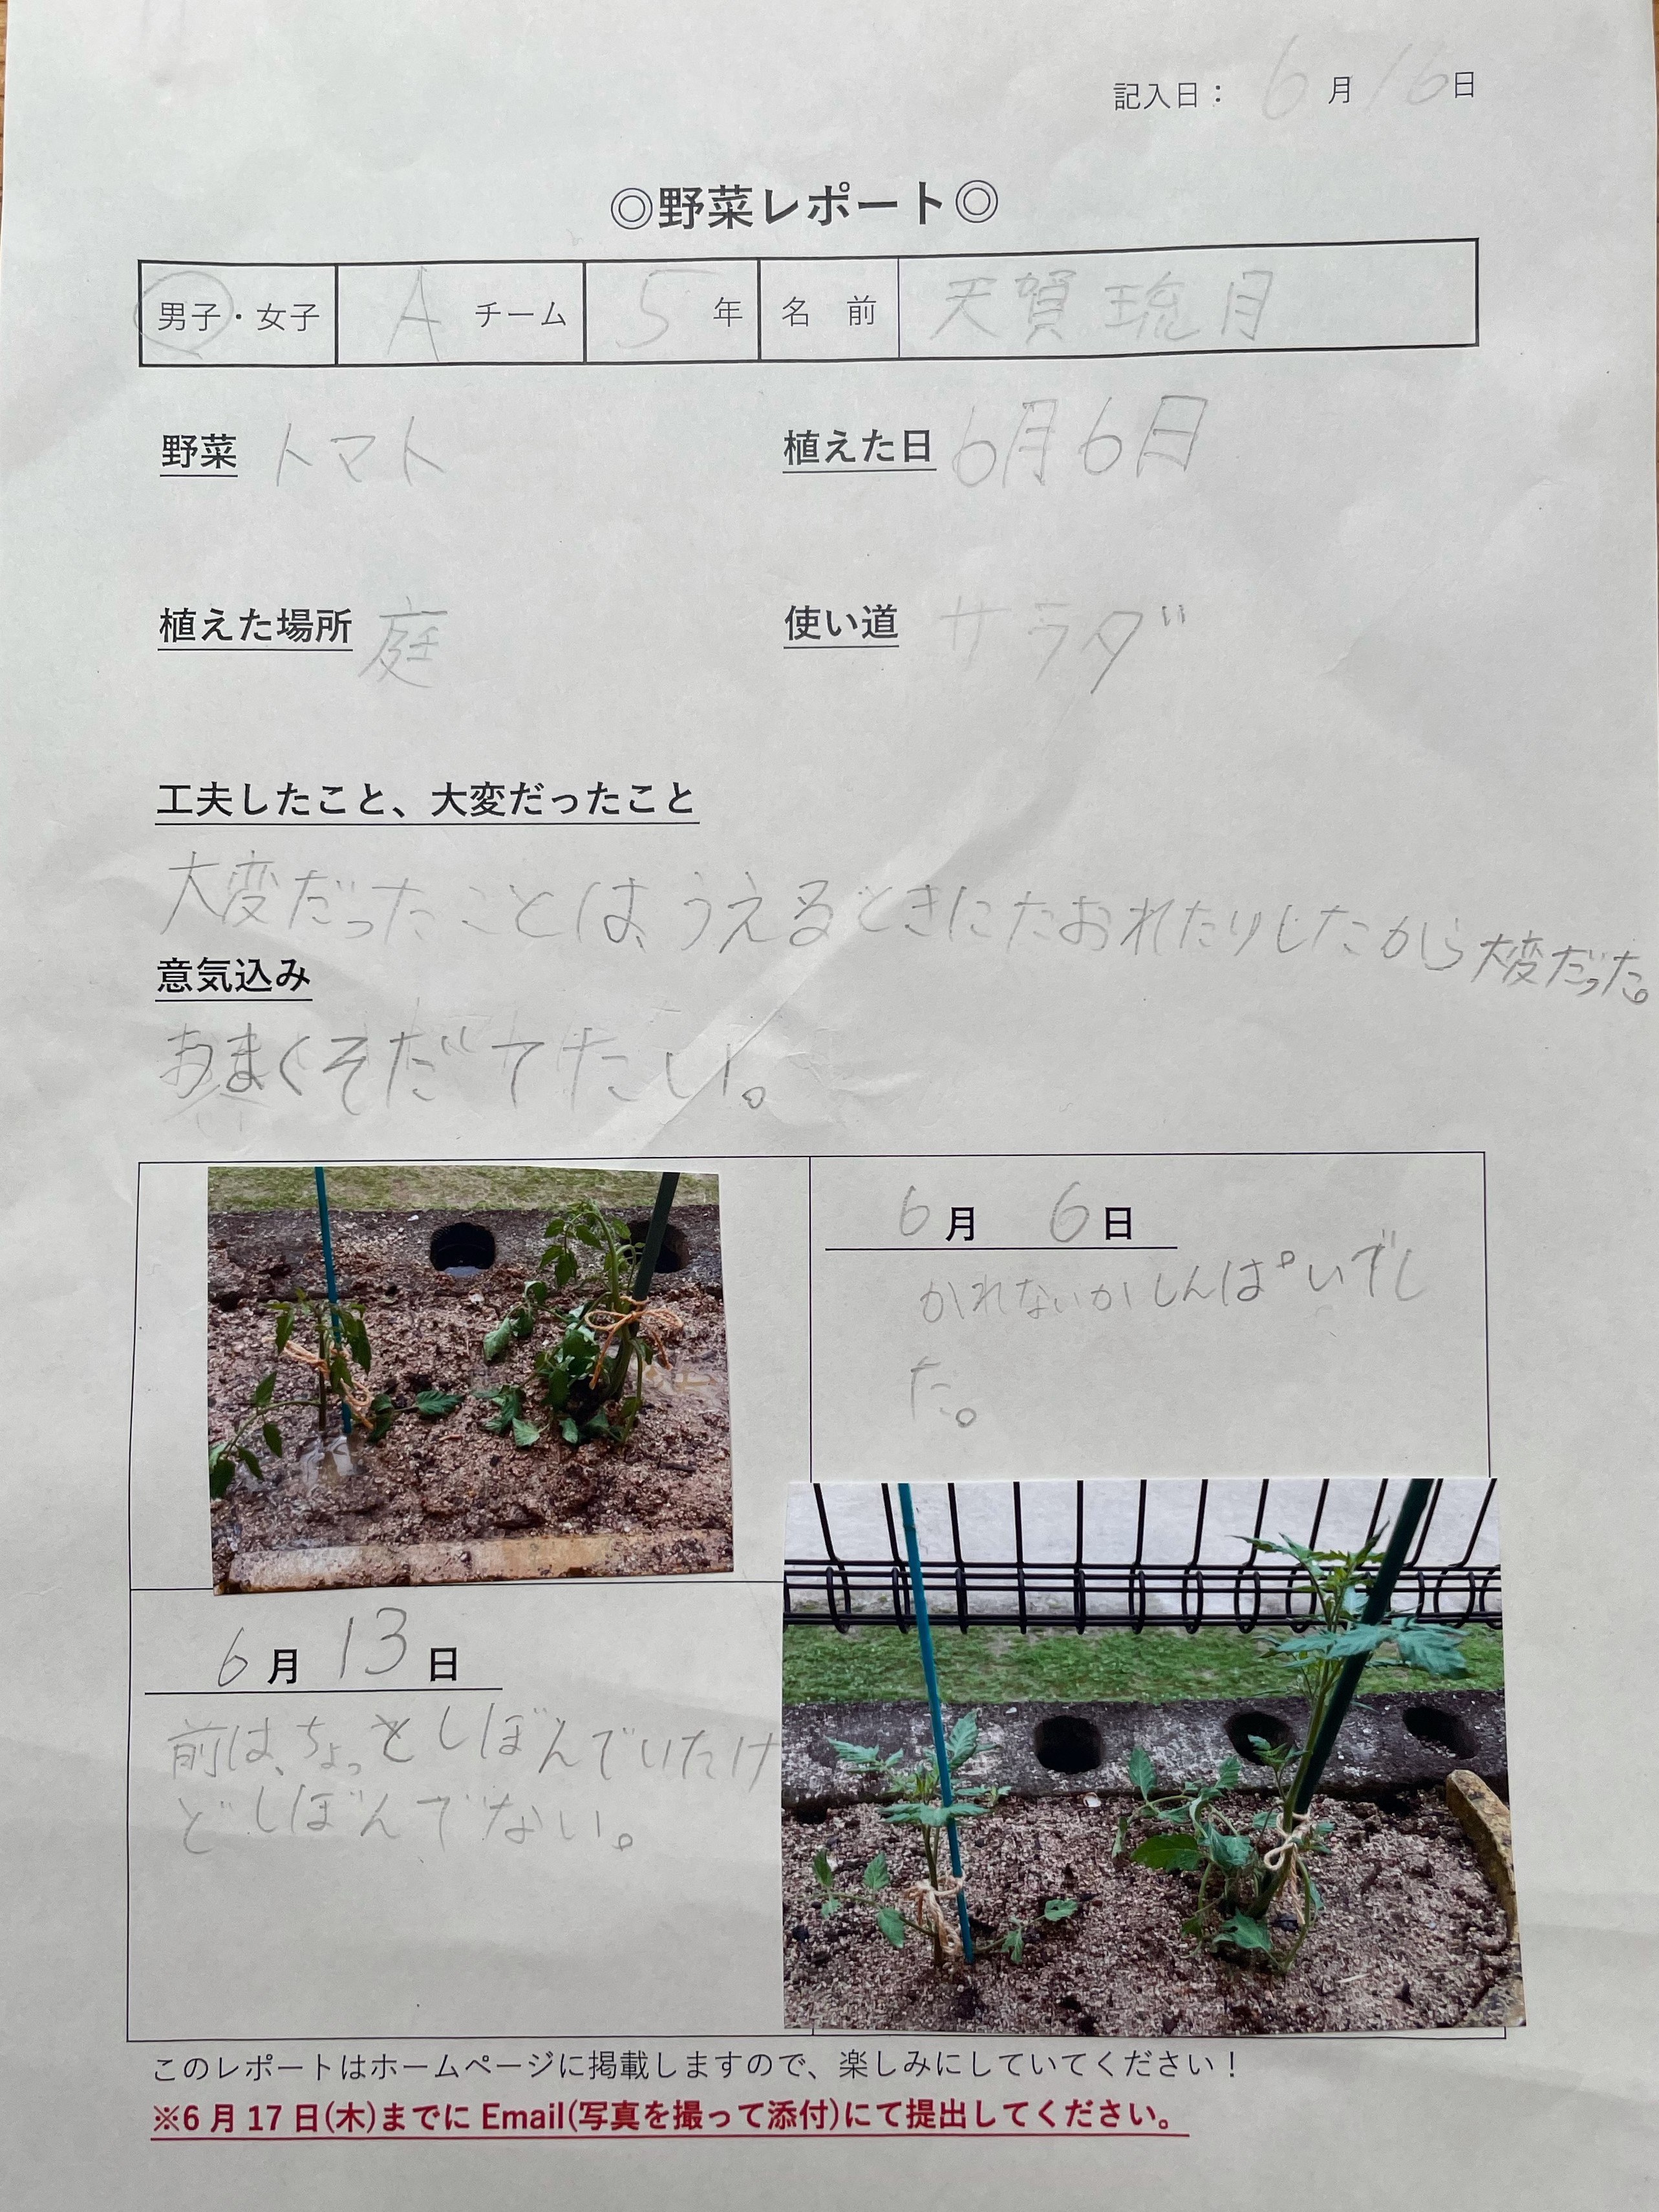 記入日： 6月16日
◎野菜レポート◎
男子・女子 Aチーム 5年 名 前 天賀 琉月
野菜 トマト 植えた日 6月6日
植えた場所 庭 使い道 サラダ
工夫したこと、大変だったこと
大変だったことは、うえるときにたおれたりしたから大変だった。
意気込み
まくそだてたい。
6月 6日
かれないかしんぱいでし
た。
6月 13日
前は、ちょっとしぼんでいたけ
どしぼんでない。
このレポートはホームページに掲載しますので、楽しみにしていてください！
※6月17日(木)までにEmail(写真を撮って添付)にて提出してください。